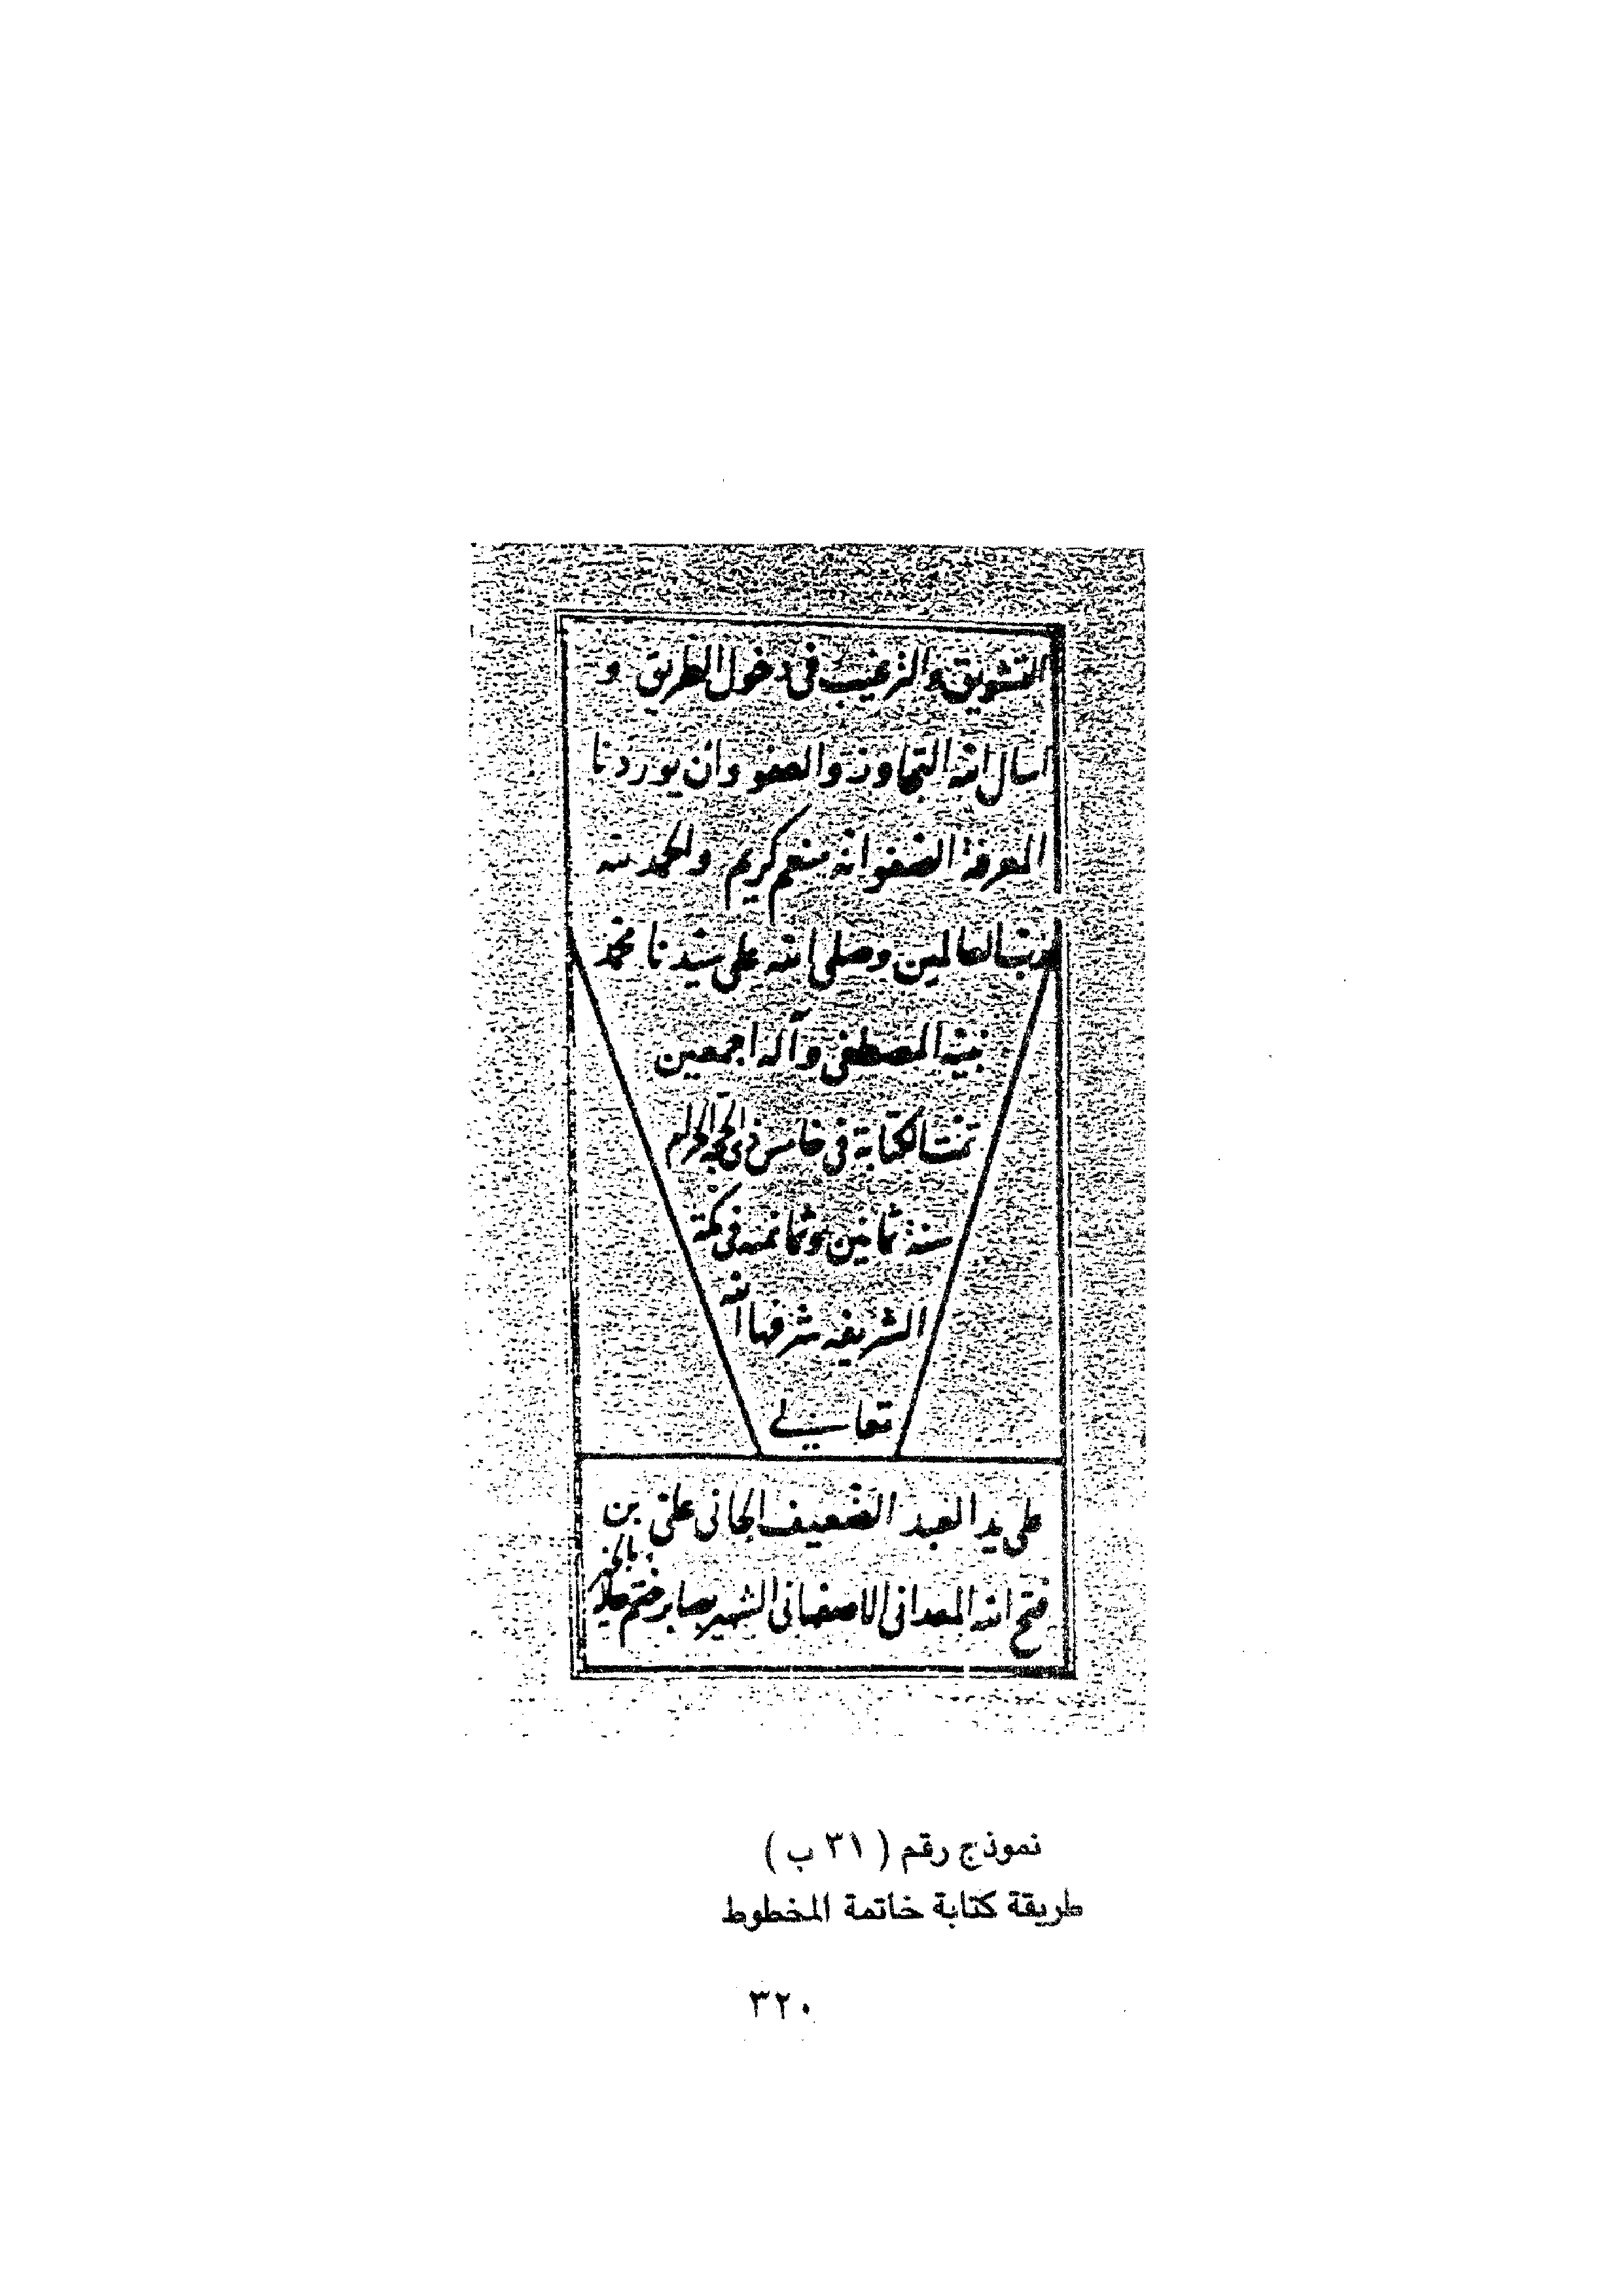 التشويق والترغيب في دخول الطريق و
اسال الله التجاوز والعفو وان يوردنا
المعرفة الصفو انه منعم كريم والحمد لله
رب العالمين وصلى الله على سيدنا محمد
نبيه المصطفى وآله اجمعين
تمت الكتابة في خامس ذي الحجة الحرام
سنة ثمانين وثمانمئه في مكة
الشريفه شرفها الله
تعالى
على يد العبد الضعيف الجاني علي بن
فتح الله المعداني الاصفهاني الشهير بصابر ختم له بالخير
نموذج رقم ( ٣١ ب )
طريقة كتابة خاتمة المخطوط
٣٢٠